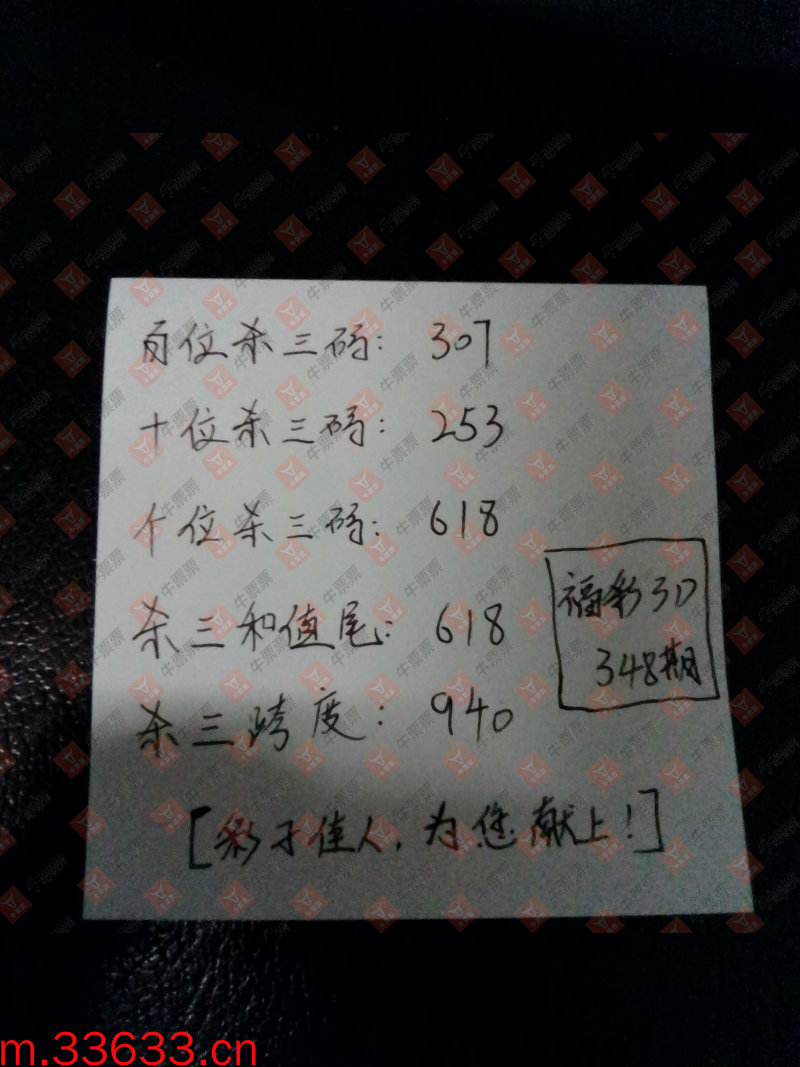 百位杀三码: 307
十位杀三码: 253
个位杀三码: 618
杀三和值尾: 618
福彩3D
348期
杀三跨度: 940
[彩子佳人,为您献上!]
牛票票
m.33633.cn